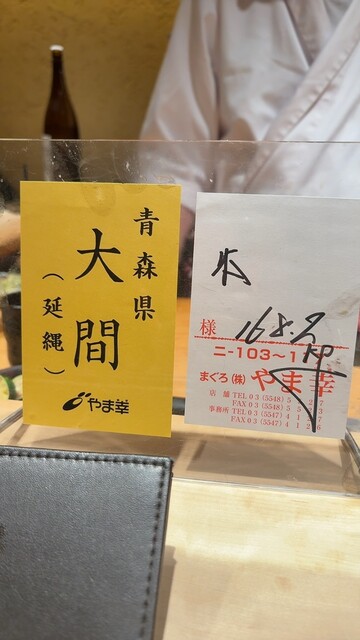 青森県
大間
(延縄)
やま幸
様
168.9
ニ-103~1
まぐろ(株) やま幸
店舗 TEL 03 (5548) 5
FAX 03 (5548) 5
事務所 TEL 03 (5547) 4 1
FAX 03 (5547) 4 1